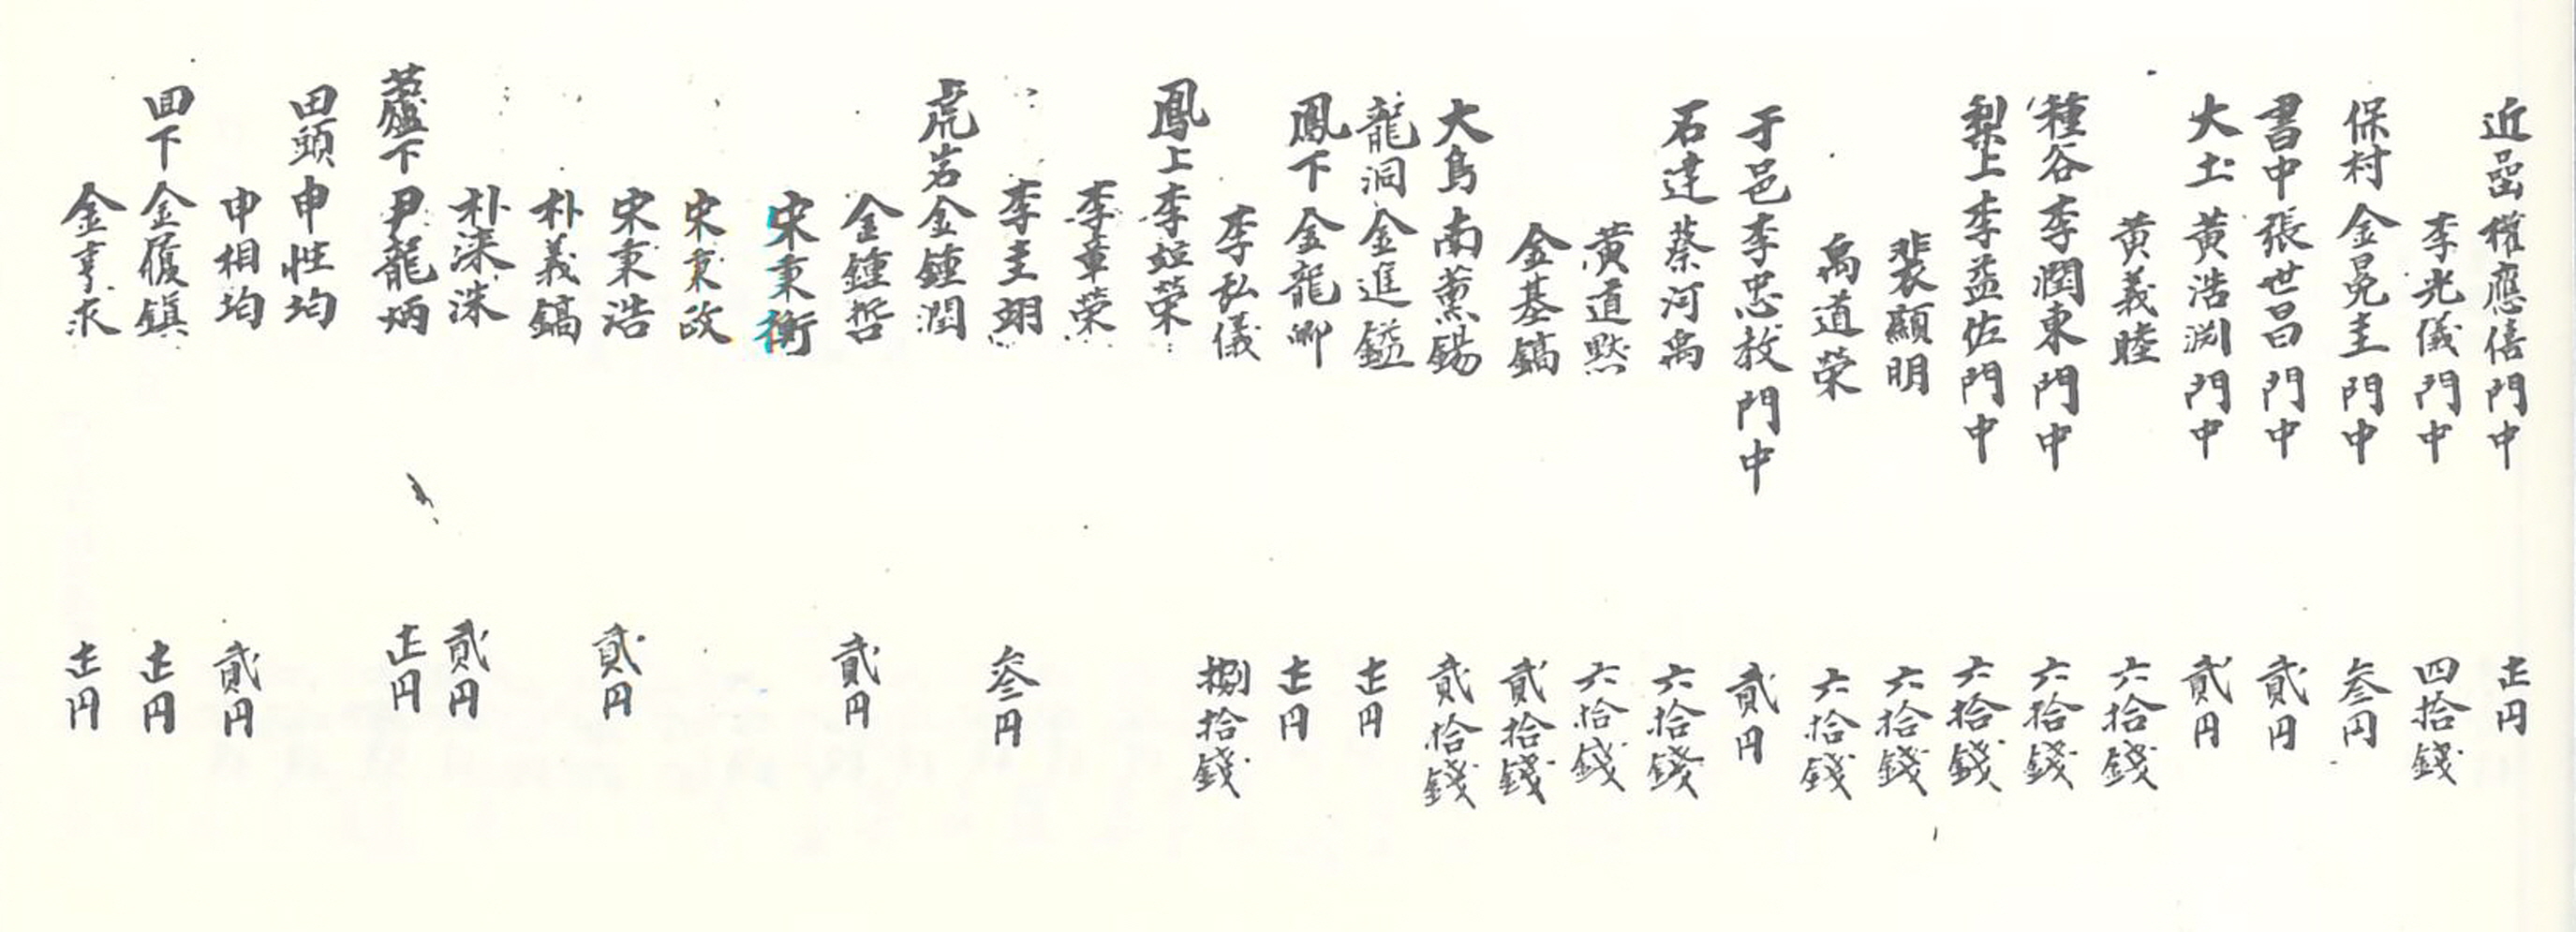 近嵒 權應僖門中 壱円
李光儀門中 四拾錢
保村 金冕圭門中 参円
書中 張世昌門中 貳円
大土 黄浩渊門中 貳円
黄義睦 六拾錢
種谷 李潤東門中 六拾錢
梨上 李益佐門中 六拾錢
裴顯明 六拾錢
禹道榮 六拾錢
于邑 李忠敎門中 貳円
石達 蔡河禹 六拾錢
黄道默 六拾錢
金基鎬 貳拾錢
大鳥 南薫錫 貳拾錢
龍洞 金進鎰 壱円
鳳下 金龍卿 壱円
李弘儀 捌拾錢
鳳上 李烜榮
李章榮
李圭翊 参円
虎岩 金鍾潤
金鍾哲 貳円
宋秉衡
宋秉玫
宋秉浩 貳円
朴義鎬
朴淶洙 貳円
蘆下 尹龍炳 壱円
田頭 申性均
申相均 貳円
回下 金履鎭 壱円
金亨求 壱円